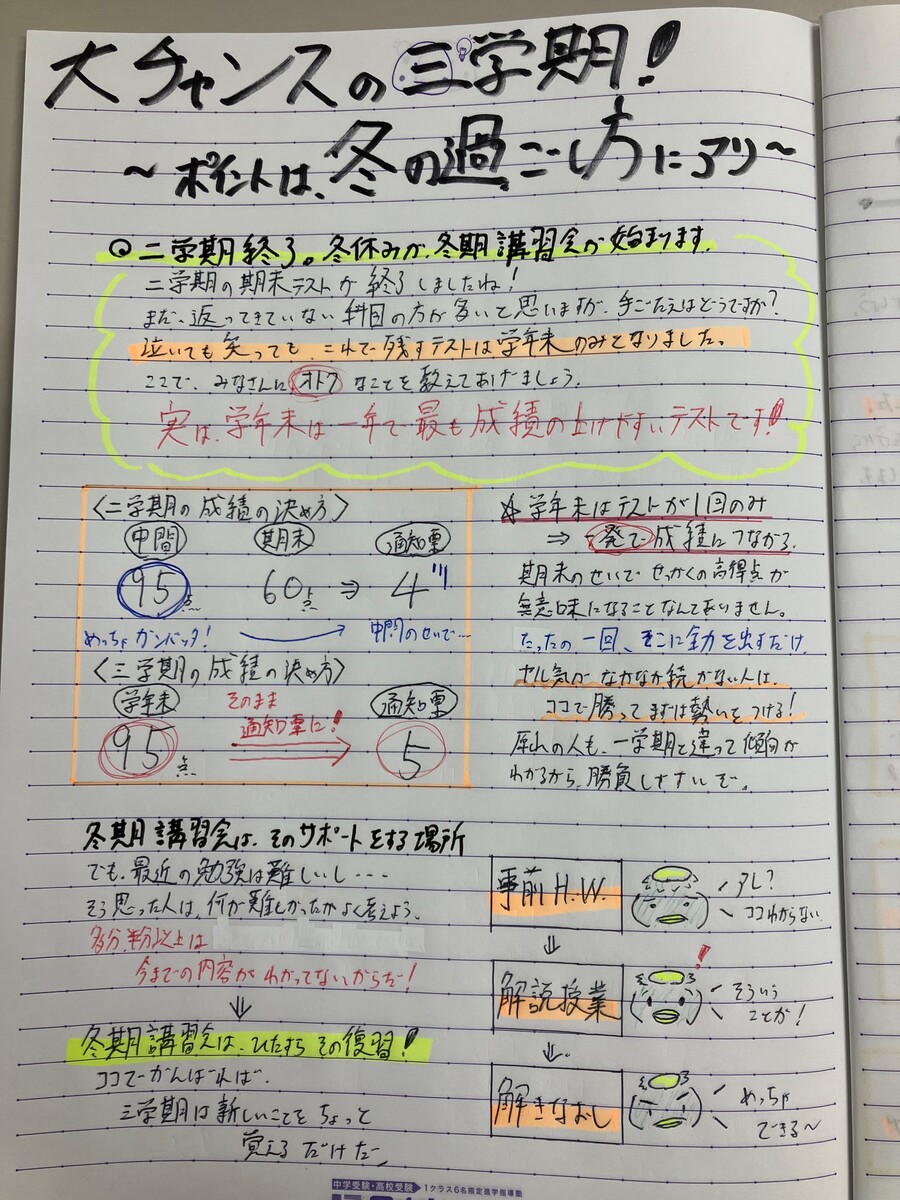 大チャンスの三学期!
～ポイントは、冬の過ごし方にアリ～
◎二学期終了。冬休みが、冬期講習会が始まります。
二学期の期末テストが終了しましたね!
まだ、返ってきていない科目の方が多いと思いますが、手ごたえはどうですか?
泣いても笑っても、これで残すテストは学年末のみとなりました。
ここで、みなさんにオトクなことを教えてあげましょう。
実は、学年末は一年で最も成績の上げやすいテストです!!
〈二学期の成績の決め方〉
中間 期末 通知票
95点 60点 ⇒ 4
めっちゃガンバッタ! 中間のせいで…
〈三学期の成績の決め方〉
学年末 そのまま通知票に! 通知票
95点 5
※学年末はテストが1回のみ
⇒一発で成績につながる。
期末のせいでせっかくの高得点が
無意味になることなんてありません。
たったの一回、そこに全力を出すだけ。
ヤル気がなかなか続かない人は、
ココで勝ってまずは勢いをつける!
遅れの人も、一学期と違って傾向が
わかるから、勝負しやすいぞ。
冬期講習会は、そのサポートをする場所
でも、最近の勉強は難しいし…
そう思った人は、何が難しかったかよく考えよう。
多分、半分以上は
今までの内容がわかってないからだ!
⇓
冬期講習会は、ひたすらその復習!
ココでがんばれば、
三学期は新しいことをちょっと
覚えるだけだ
事前H.W.
アレ?
ココわからない
⇓
解説授業
!
そういう
ことか!
⇓
解きなおし
めっちゃ
できる～
中学受験・高校受験 1クラス6名限定進学指導塾